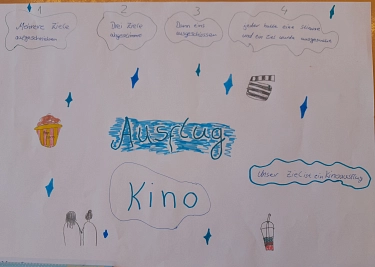 1
Mehrere Ziele
aufgeschrieben
2
Drei Ziele
abgestimmt
3
Dann eins
ausgeschlossen
4
jeder hatte eine Stimme
und Ein Ziel wurde ausgewählt
Ausflug
unser Ziel ist ein Kinoausflug
Kino